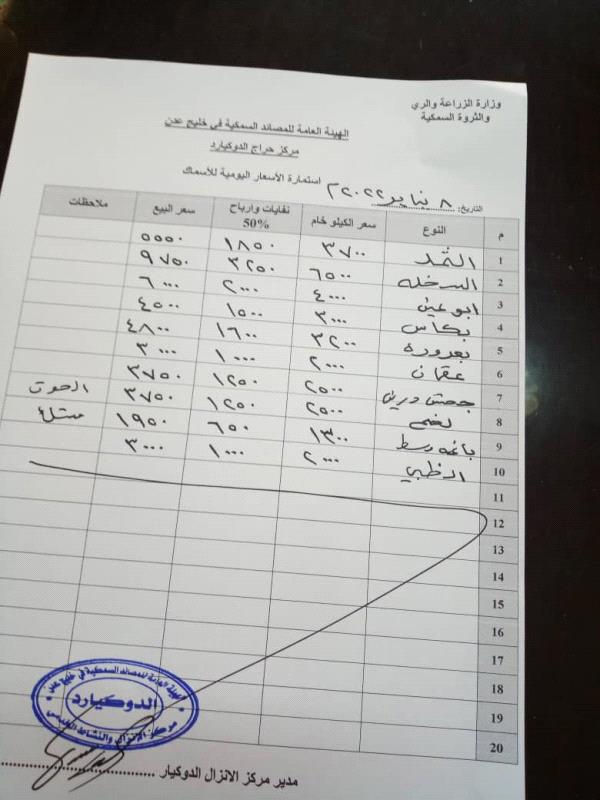 وزارة الزراعة والري
والثروة السمكية
الهيئة العامة للمصائد السمكية في خليج عدن
مركز حراج الدوكيارد
استمارة الأسعار اليومية للأسماك
التاريخ: ٨ يناير ٢٠٢٢م
م النوع سعر الكيلو خام نفايات وارباح 50% سعر البيع ملاحظات
1 الثمد ٣٧٠٠ ١٨٥٠ ٥٥٥٠
2 السخله ٦٥٠٠ ٣٢٥٠ ٩٧٥٠
3 ابوعين ٤٠٠٠ ٢٠٠٠ ٦٠٠٠
4 بكاس ٣٠٠٠ ١٥٠٠ ٤٥٠٠
5 ٣٢٠٠ ١٦٠٠ ٤٨٠٠
6 عقمان ٢٠٠٠ ١٠٠٠ ٣٠٠٠
7 جحش ٢٥٠٠ ١٢٥٠ ٣٧٥٠ الحوت
8 لخم ٢٥٠٠ ١٢٥٠ ٣٧٥٠
9 باغه وسط ١٣٠٠ ٦٥٠ ١٩٥٠
10 الظبي ٢٠٠٠ ١٠٠٠ ٣٠٠٠
11
12
13
14
15
16
17
18
19
20
الهيئة العامة للمصائد السمكية في خليج عدن
الدوكيارد
مركز الانزال والنشاط
مدير مركز الانزال الدوكيار